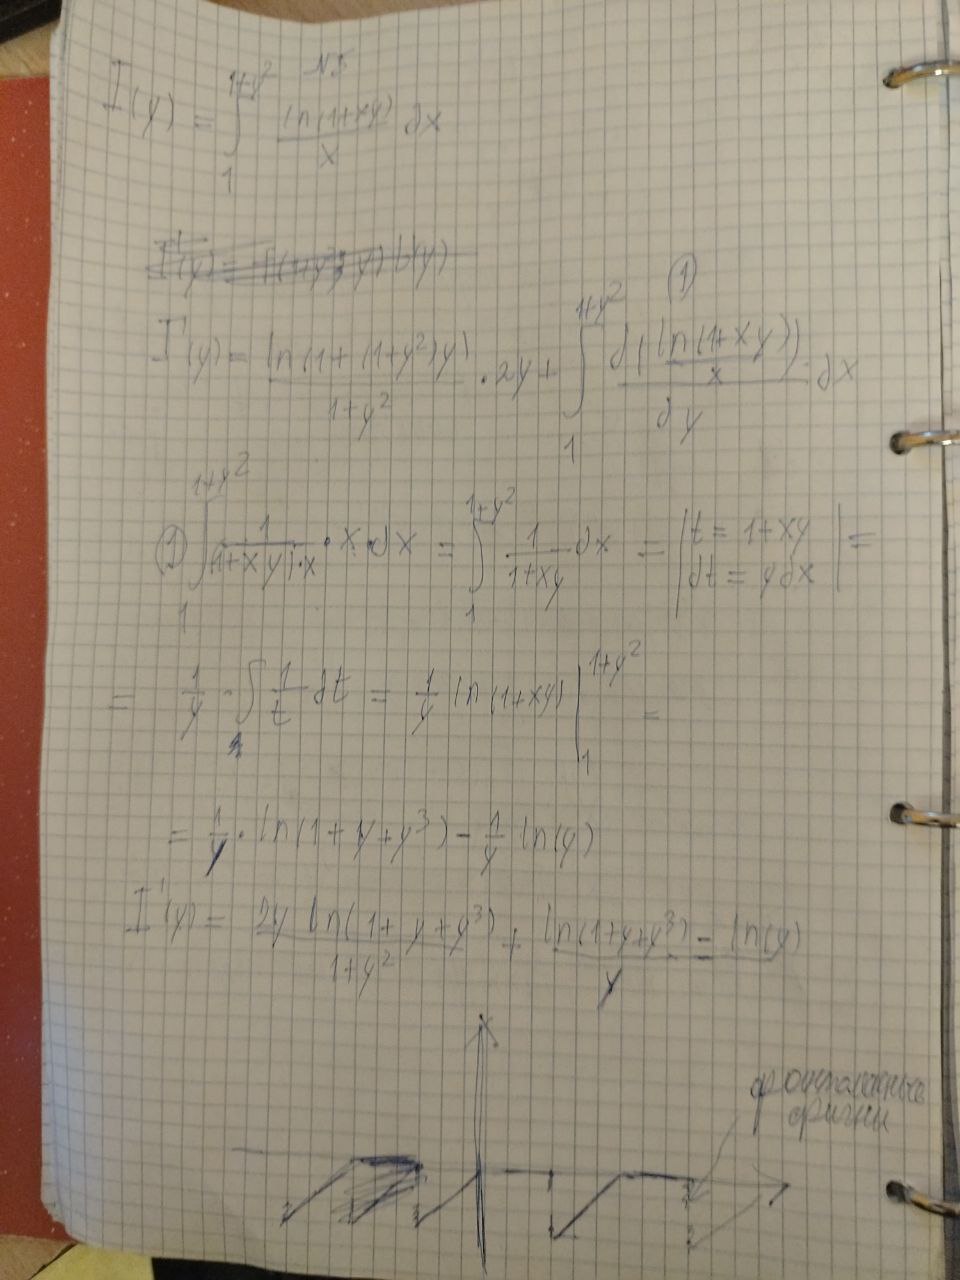 N5
I(y) = ∫_1^{1+y²} ln(1+xy)/x dx
I'(y) = ln(1+(1+y²)y)/(1+y²) · 2y + ∫_1^{1+y²} d(ln(1+xy)/x)/dy dx ①
① ∫_1^{1+y²} 1/((1+xy)·x) · x · dx = ∫_1^{1+y²} 1/(1+xy) dx = |t = 1+xy
dt = ydx| =
= 1/y · ∫ 1/t dt = 1/y ln(1+xy) |_1^{1+y²} =
= 1/y · ln(1+y+y³) - 1/y ln(y)
I'(y) = 2y ln(1+y+y³)/(1+y²) + (ln(1+y+y³) - ln(y))/y